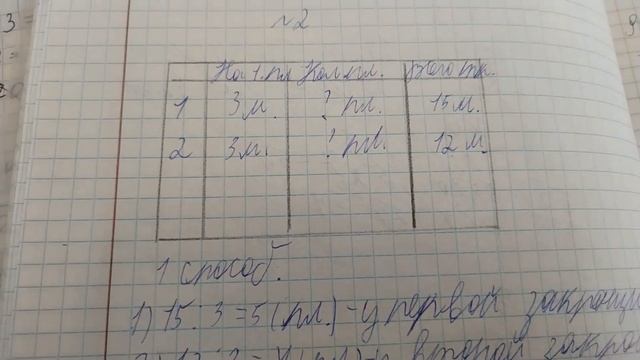 №2
На 1 пл. Кол. пл. Всего тк.
1 3 м. ? пл. 15 м.
2 3 м. ? пл. 12 м.
1 способ.
1) 15 : 3 = 5 (пл.) - у первой закройщи
2) 12 : 3 = 4 (пл) - у второй закро